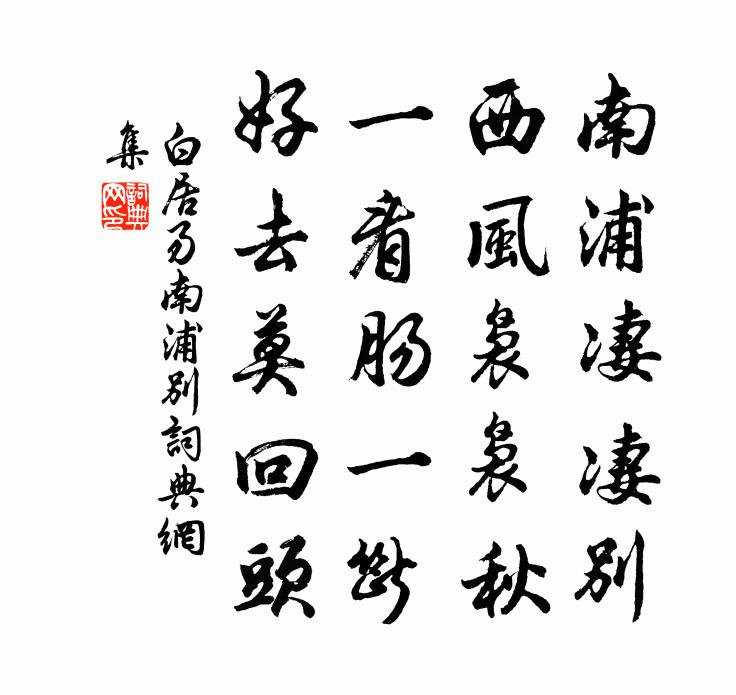 南浦凄凄別
西風裊裊秋
一看腸一斷
好去莫回頭
白居易南浦別詞典網
集
詞典網印